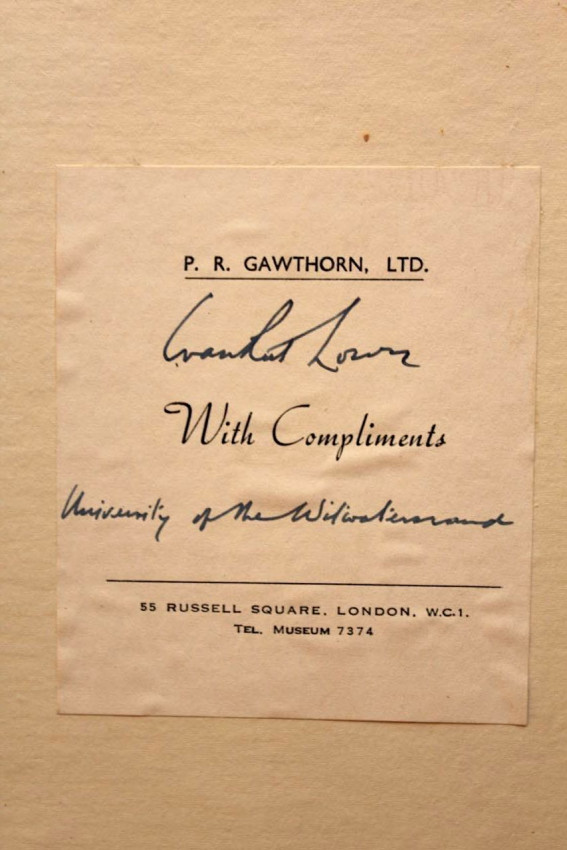 P. R. GAWTHORN, LTD.
With Compliments
University of the Witwatersrand
55 RUSSELL SQUARE, LONDON, W.C.1.
TEL. MUSEUM 7374